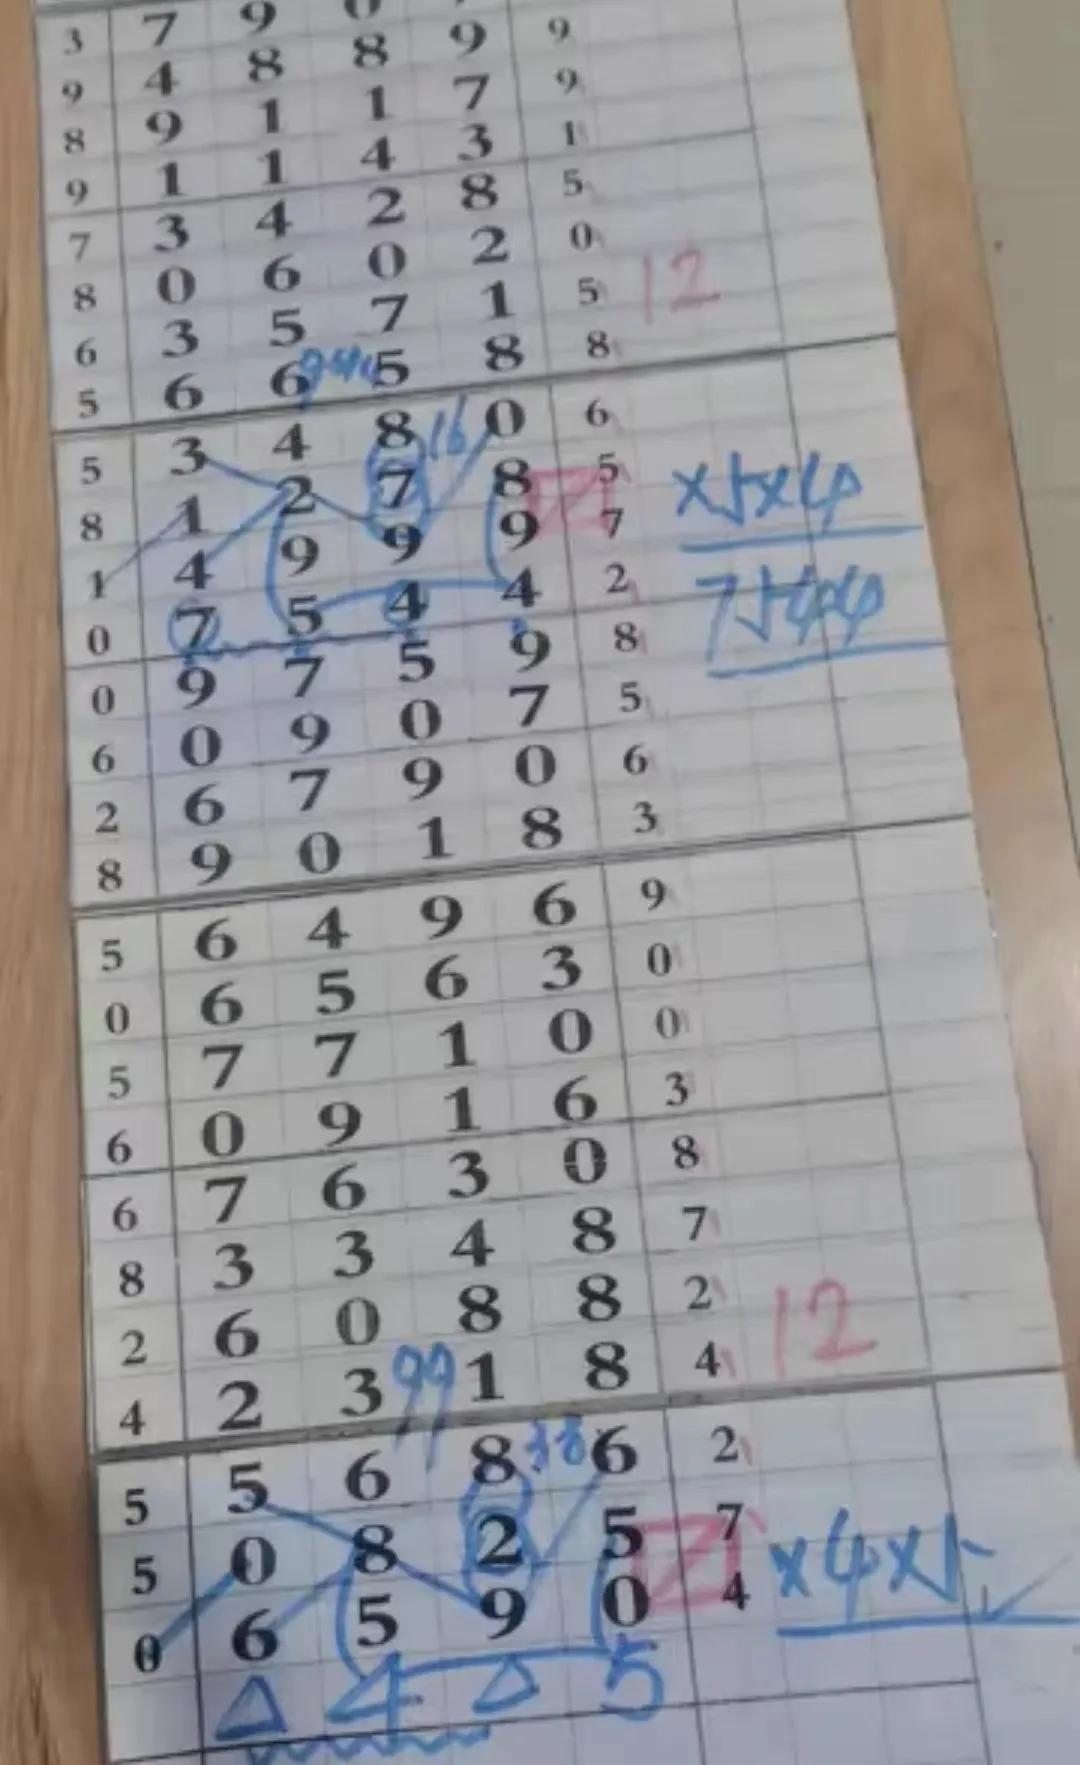 3 7 9 0
9 4 8 8 9 9
8 9 1 1 7 9
9 1 1 4 3 1
7 3 4 2 8 5
8 0 6 0 2 0
6 3 5 7 1 5 12
5 6 6 5 8 8
5 3 4 8 16 0 6
8 1 2 7 8 5 X5X4
1 4 9 9 9 7
0 7 5 4 4 2 7544
0 9 7 5 9 8
6 0 9 0 7 5
2 6 7 9 0 6
8 9 0 1 8 3
5 6 4 9 6 9
0 6 5 6 3 0
5 7 7 1 0 0
6 0 9 1 6 3
6 7 6 3 0 8
8 3 3 4 8 7
2 6 0 8 8 2 12
4 2 3 99 1 8 4
5 5 6 8 38 6 2
5 0 8 2 5 7 X4X5
0 6 5 9 0 4
△ 4 △ 5